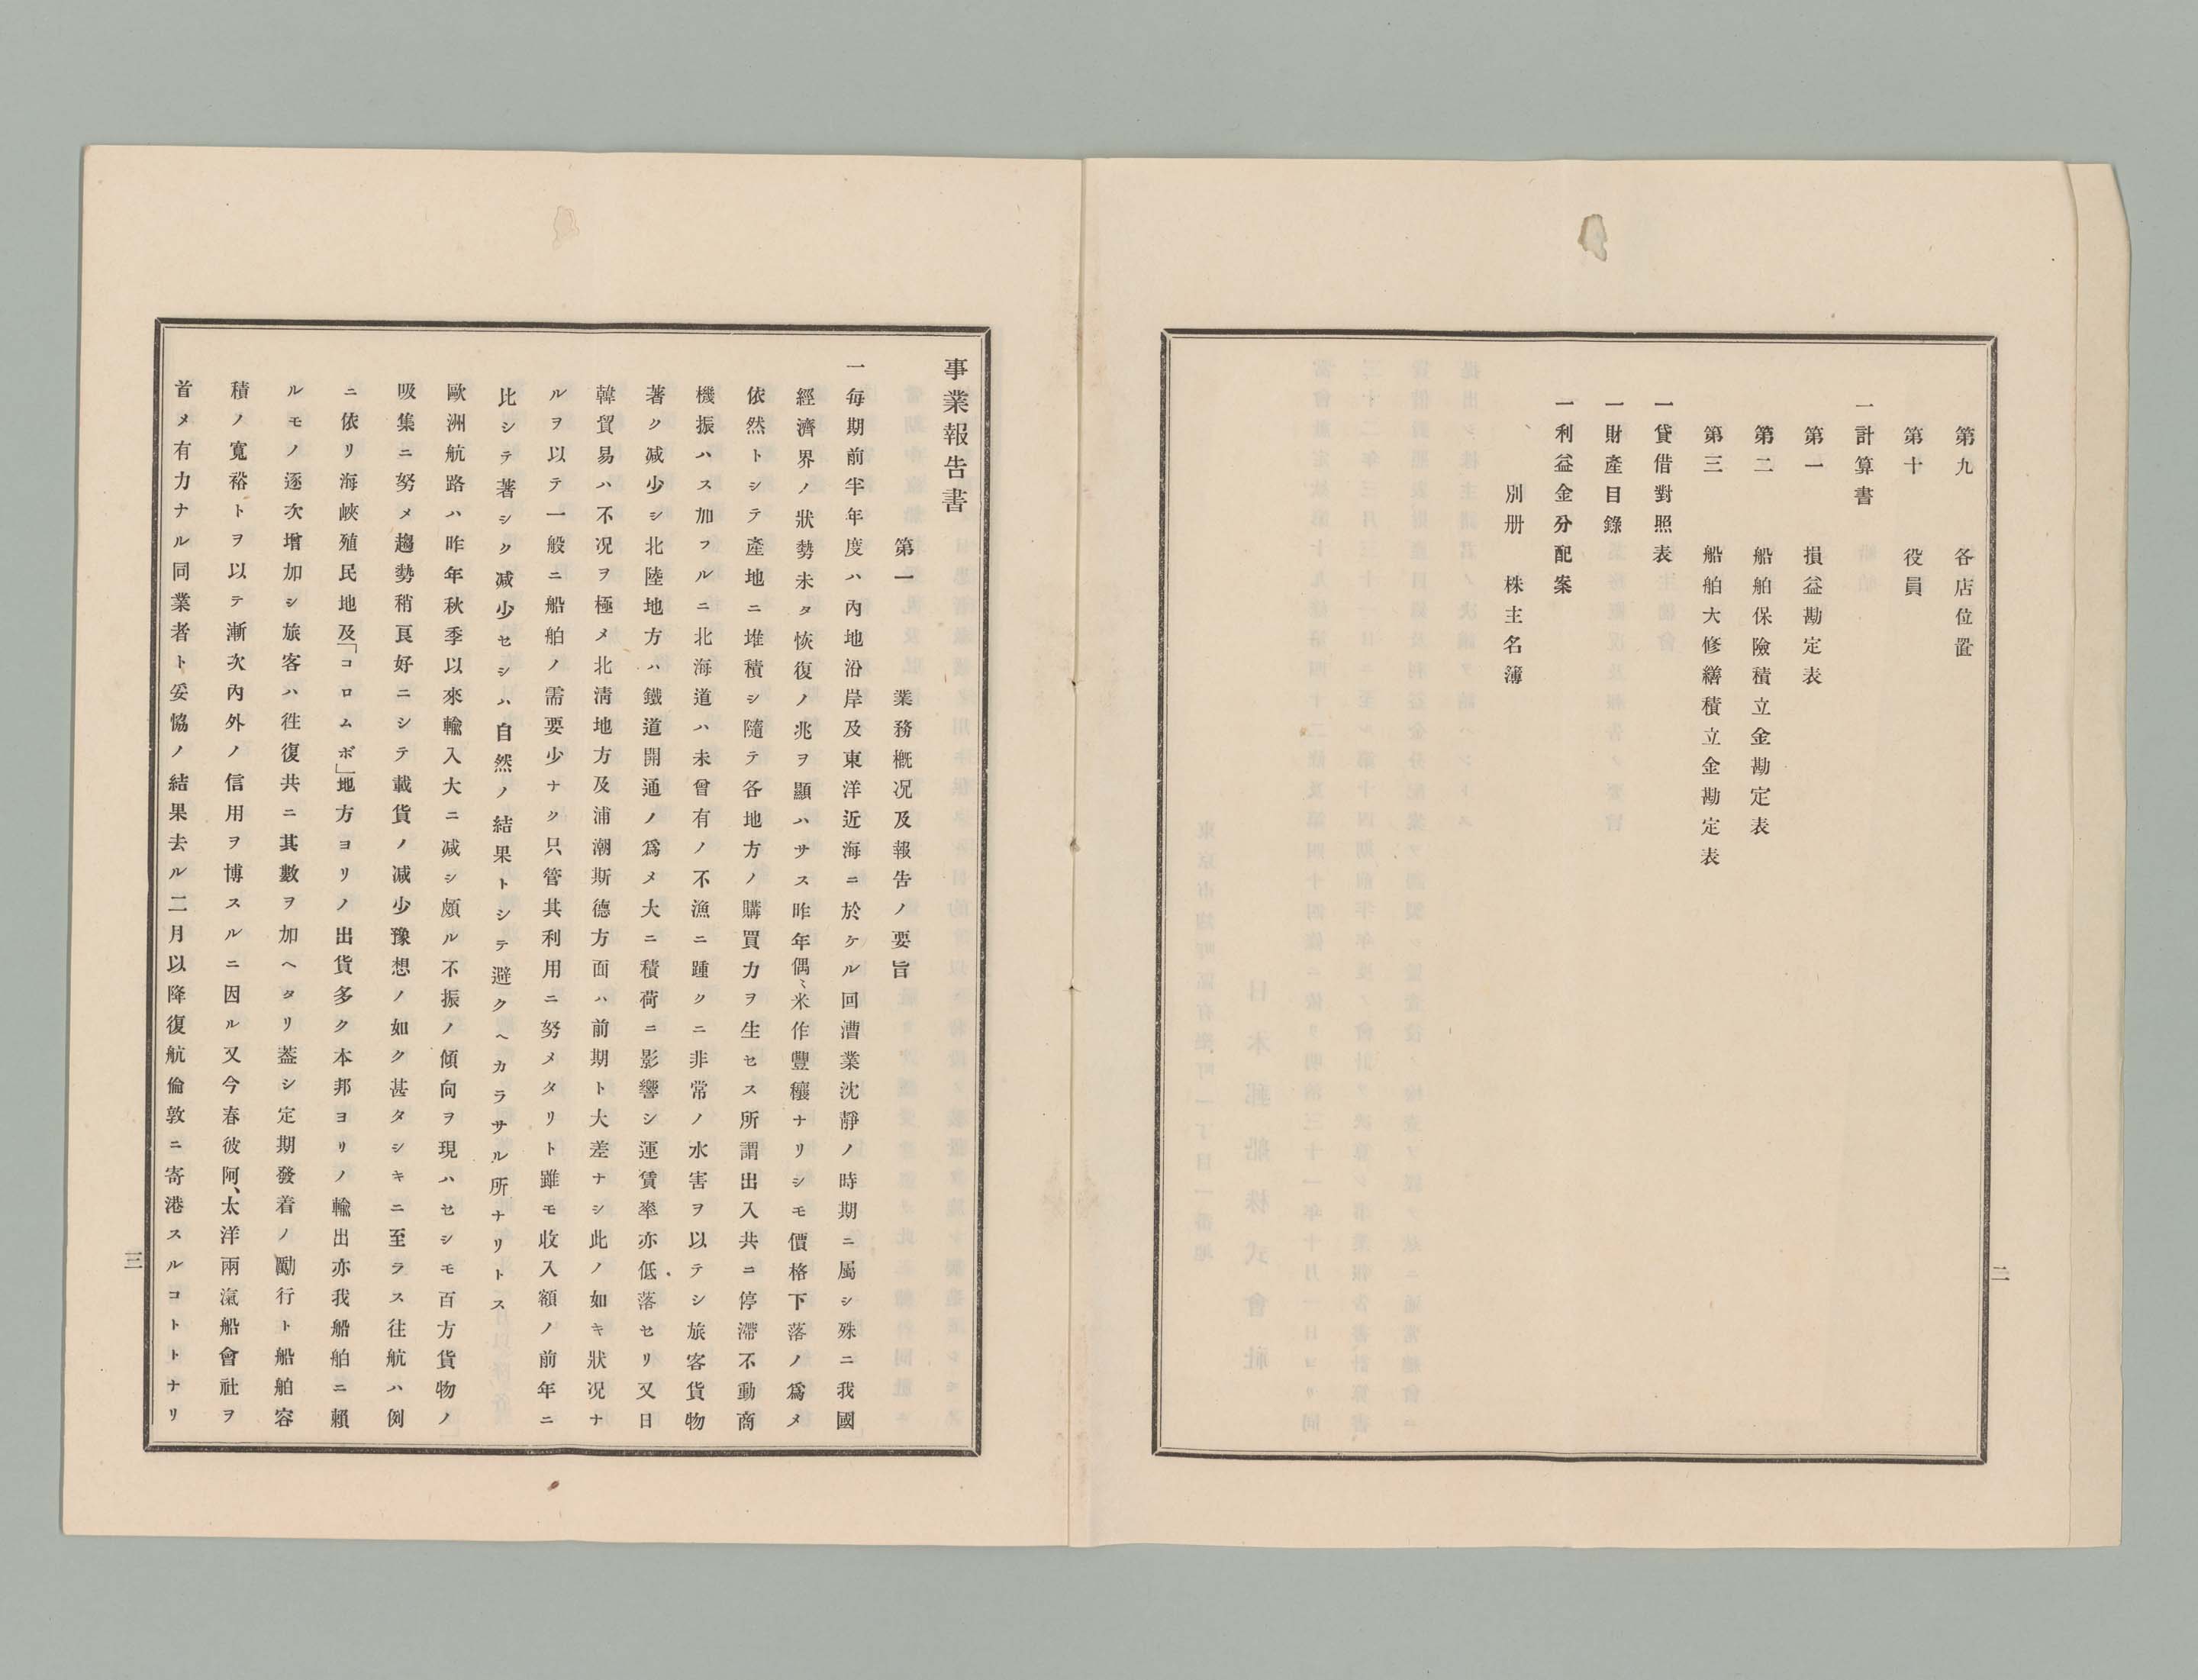 第九　各店位置
第十　役員
一計算書
第一　損益勘定表
第二　船舶保險積立金勘定表
第三　船舶大修繕積立金勘定表
一貸借對照表
一財產目錄
一利益金分配案
別册　株主名簿
二
事業報告書
第一　業務概況及報告ノ要旨
一每期前半年度ハ內地沿岸及東洋近海ニ於ケル回漕業沈靜ノ時期ニ屬シ殊ニ我國
經濟界ノ狀勢未タ恢復ノ兆ヲ顯ハサス昨年偶〻米作豐穰ナリシモ價格下落ノ爲メ
依然トシテ產地ニ堆積シ隨テ各地方ノ購買力ヲ生セス所謂出入共ニ停滯不動商
機振ハス加フルニ北海道ハ未曾有ノ不漁ニ踵クニ非常ノ水害ヲ以テシ旅客貨物
著ク減少シ北陸地方ハ鐵道開通ノ爲メ大ニ積荷ニ影響シ運賃率亦低落セリ又日
韓貿易ハ不況ヲ極メ北淸地方及浦潮斯德方面ハ前期ト大差ナシ此ノ如キ狀況ナ
ルヲ以テ一般ニ船舶ノ需要少ナク只管其利用ニ努メタリト雖モ收入額ノ前年ニ
比シテ著シク減少セシハ自然ノ結果トシテ避クヘカラサル所ナリトス
歐洲航路ハ昨年秋季以來輸入大ニ減シ頗ル不振ノ傾向ヲ現ハセシモ百方貨物ノ
吸集ニ努メ趨勢稍良好ニシテ載貨ノ減少豫想ノ如ク甚タシキニ至ラス往航ハ例
ニ依リ海峽殖民地及「コロムボ」地方ヨリノ出貨多ク本邦ヨリノ輸出亦我船舶ニ賴
ルモノ逐次增加シ旅客ハ徃復共ニ其數ヲ加ヘタリ葢シ定期發着ノ勵行ト船舶容
積ノ寬裕トヲ以テ漸次內外ノ信用ヲ博スルニ因ル又今春彼阿、太洋兩滊船會社ヲ
首メ有力ナル同業者ト妥協ノ結果去ル二月以降復航倫敦ニ寄港スルコトトナリ
三